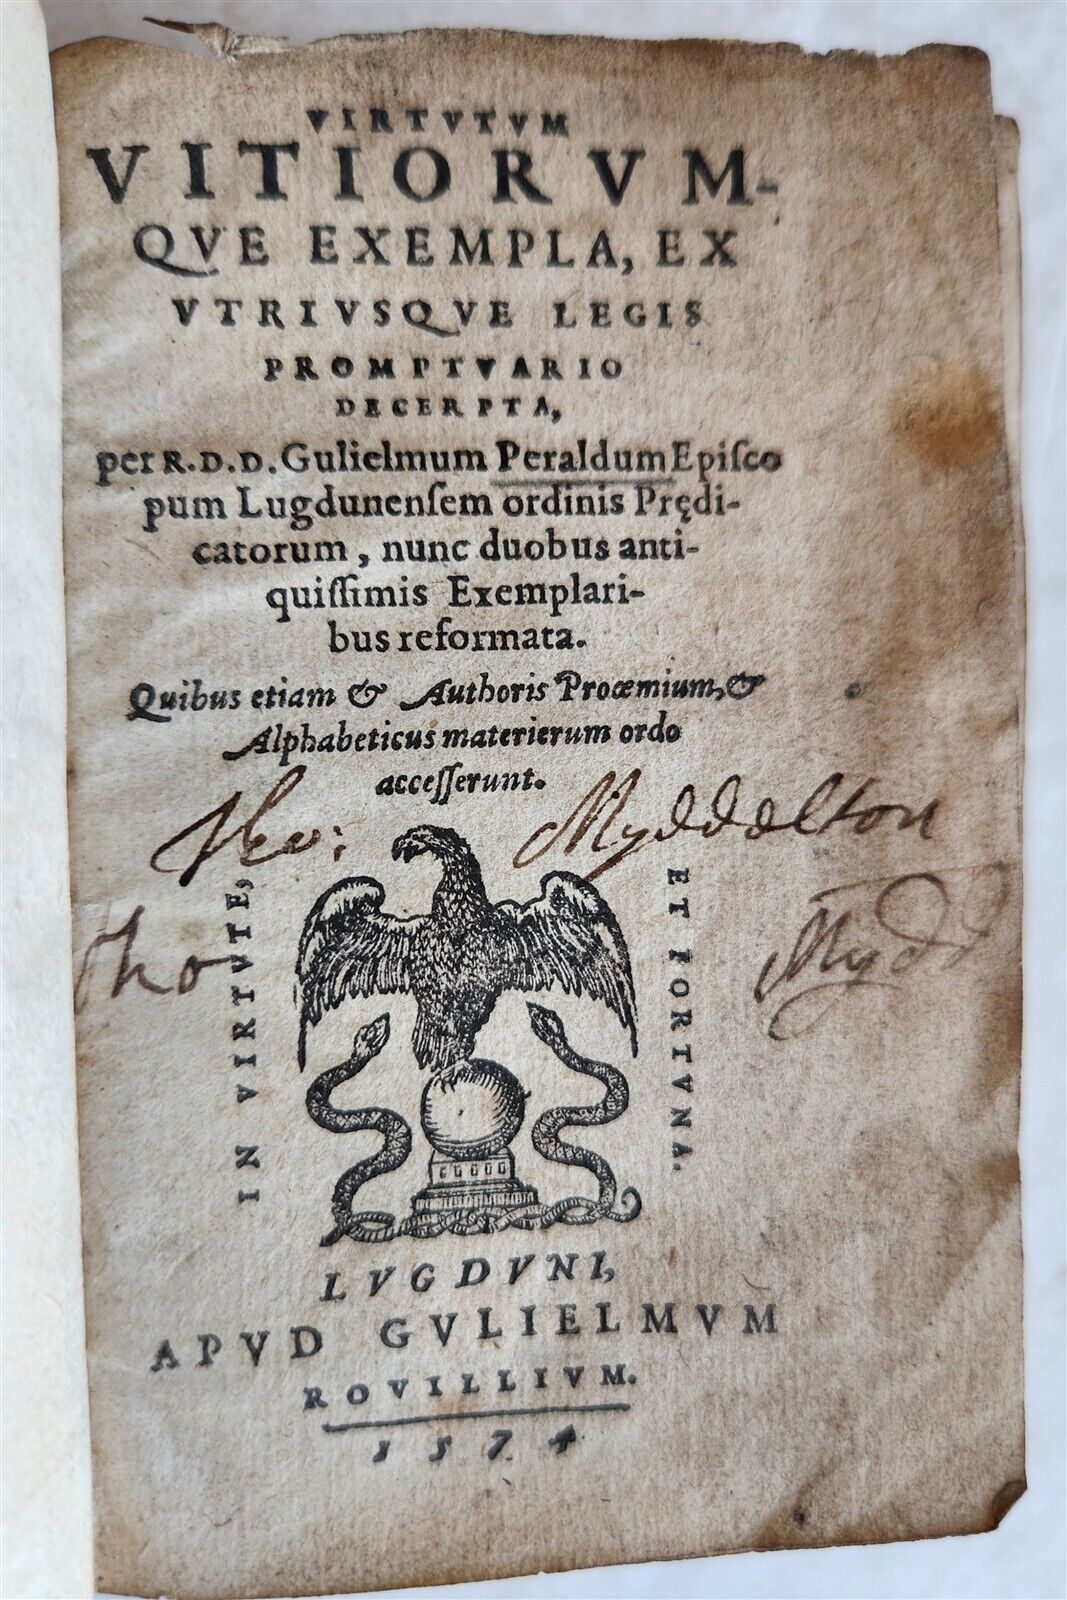 VIRTVTVM
VITIORVM-
QVE EXEMPLA, EX
VTRIVSQVE LEGIS
PROMPTVARIO
DECERPTA,
per R.D.D. Gulielmum Peraldum Epiſco
pum Lugdunenſem ordinis Prędi-
catorum, nunc duobus anti-
quiſſimis Exemplari-
bus reformata.
Quibus etiam & Authoris Proœmium, &
Alphabeticus materierum ordo
acceſſerunt.
Myddelton
Tho
Mydd
IN VIRTVTE,
ET FORTVNA.
LVGDVNI,
APVD GVLIELMVM
ROVILLIVM.
1574